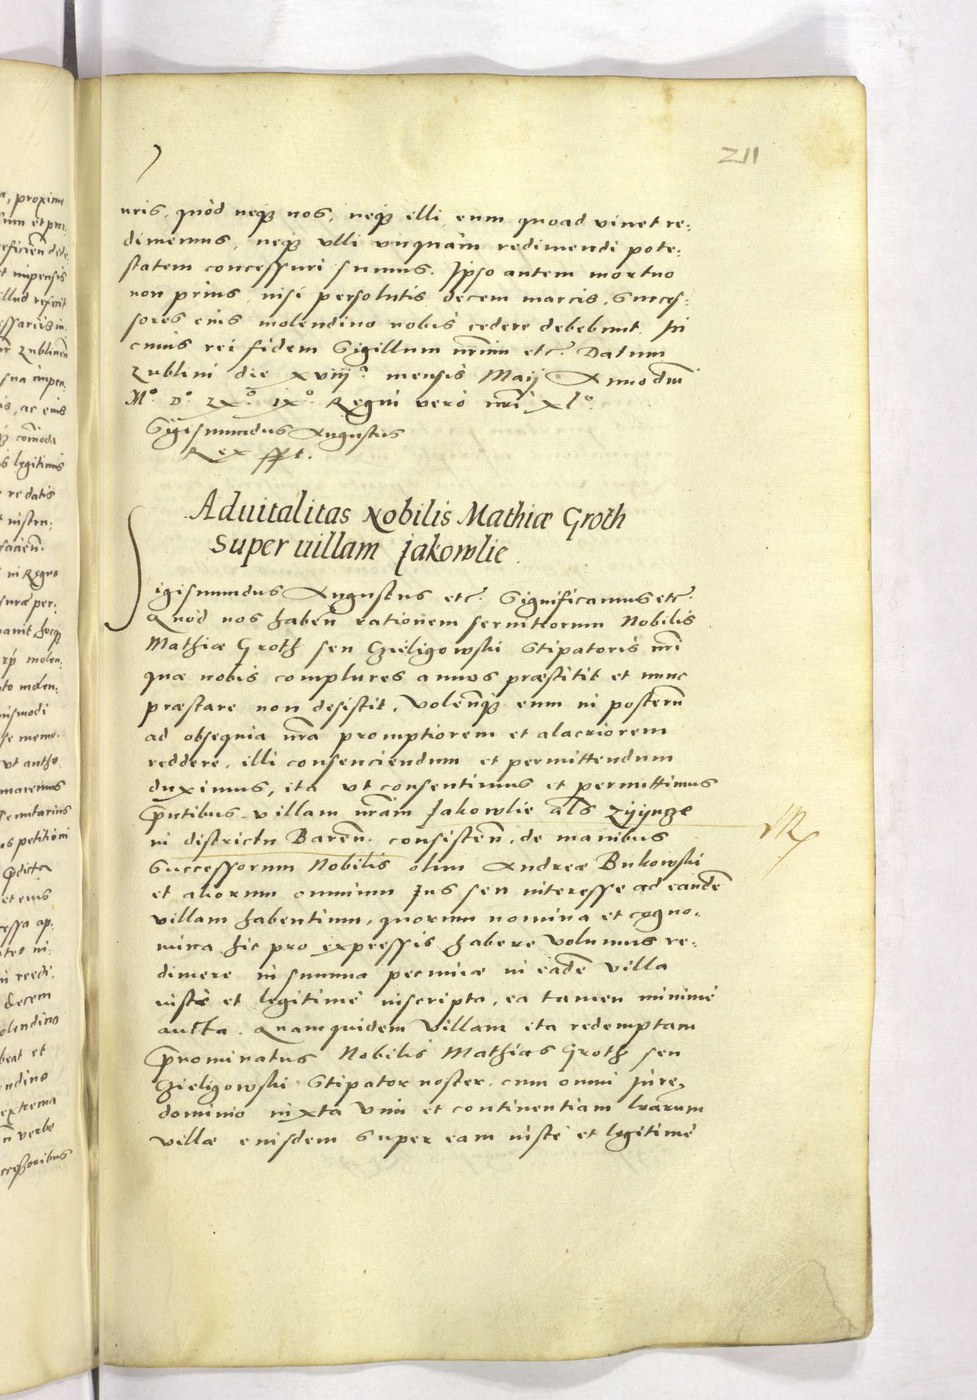 211
uris, quòd neqꝫ nos, neqꝫ illi eum quoad vivet re:
dimemus, neqꝫ ulli unquàm redimendi pote:
statem concessuri sumus. Ipso autem mortuo
non prius, nisi persolutis decem marcis, succes:
sores eius molendino nobis cedere debebunt. In
cuius rei fidem Sigillum nr̃um etc̃. Datum
Lublini die xviijª mensis Maij Anno dnī
Mº Dº LXº IXº Regni verò nr̃i XLº
Sigismundus Augustus
Rex sst.
Aduitalitas Nobilis Mathiæ Groth
super uillam Jakowlie.
Sigismundus Augustus etc̃. Significamus etc̃.
Quòd nos haben̄ rationem servitiorum Nobilis
Mathiæ Groth seu Gzieligowski Stipatoris nr̃i
quæ nobis complures annos præstitit et nunc
præstare non desistit, volen̄qꝫ eum in posterū
ad obsequia nr̃a promptiorem et alacriorem
reddere, illi consenciendum et permittendum
duximus, ita ut consentimus et permittimus
p̃ntibus villam nr̃am Jakowlie al̃s
in districtu Baren̄. consisten̄. de manibus
Successorum Nobilis olim Andreæ Bukowski
et aliorum omnium Jus seu interesse ad eandē
villam habentium, quorum nomina et cogno:
mina hic pro expressis habere volumus re:
dimere in summa pecuniæ in eadē villa
iustè et legitimè inscripta, ea tamen minimè
aucta. Quamquidem villam ita redemptam
p̃nominatus Nobilis Mathias Groth seu
Gzieligowski Stipator noster, cum omni Jure,
dominio iuxta vim et continentiam lr̃arum
villæ eiusdem super eam iustè et legitimè